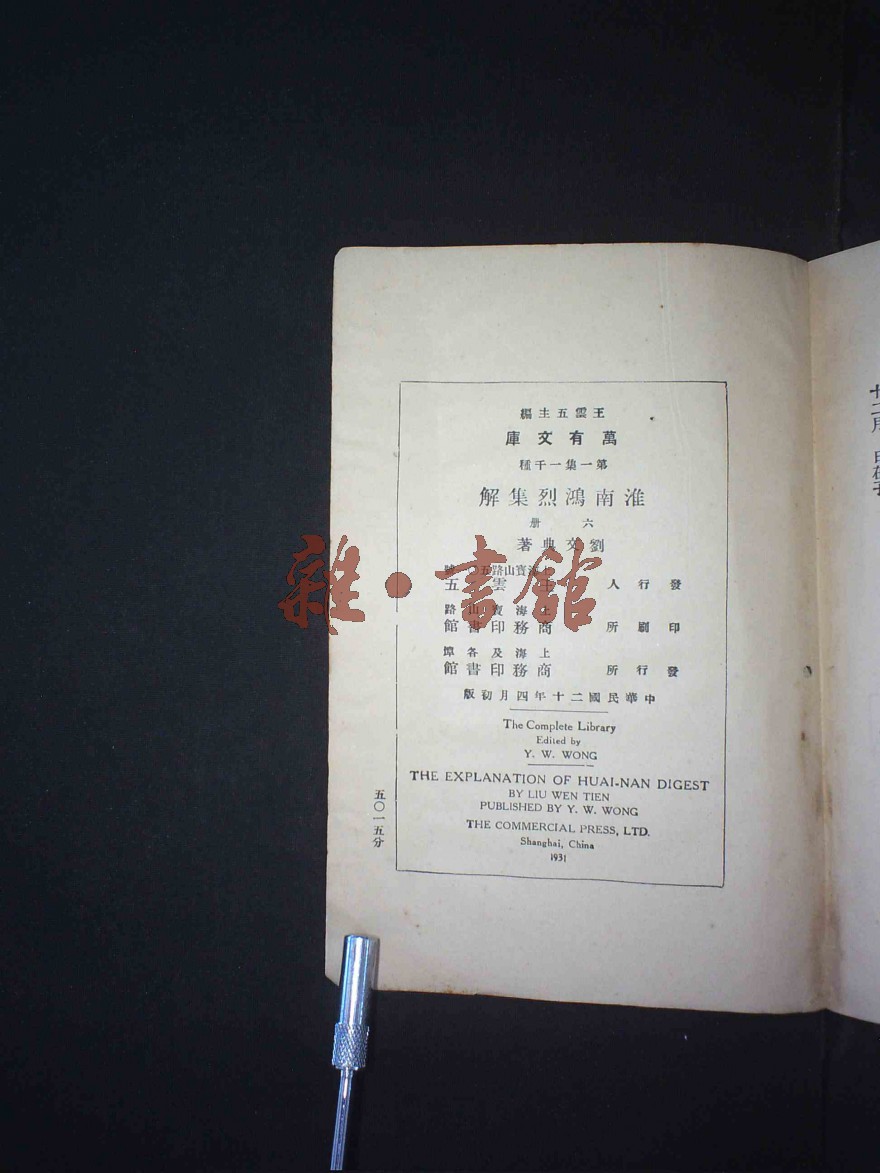 王雲五主編
萬有文庫
第一集一千種
淮南鴻烈集解
六冊
劉文典著
海寶山路五〇 號
發行人 王雲五
上海寶山路
印刷所 商務印書館
上海及各埠
發行所 商務印書館
中華民國二十年四月初版
The Complete Library
Edited by
Y. W. WONG
THE EXPLANATION OF HUAI-NAN DIGEST
BY LIU WEN TIEN
PUBLISHED BY Y. W. WONG
THE COMMERCIAL PRESS, LTD.
Shanghai, China
1931
五〇一五分
雜·書館